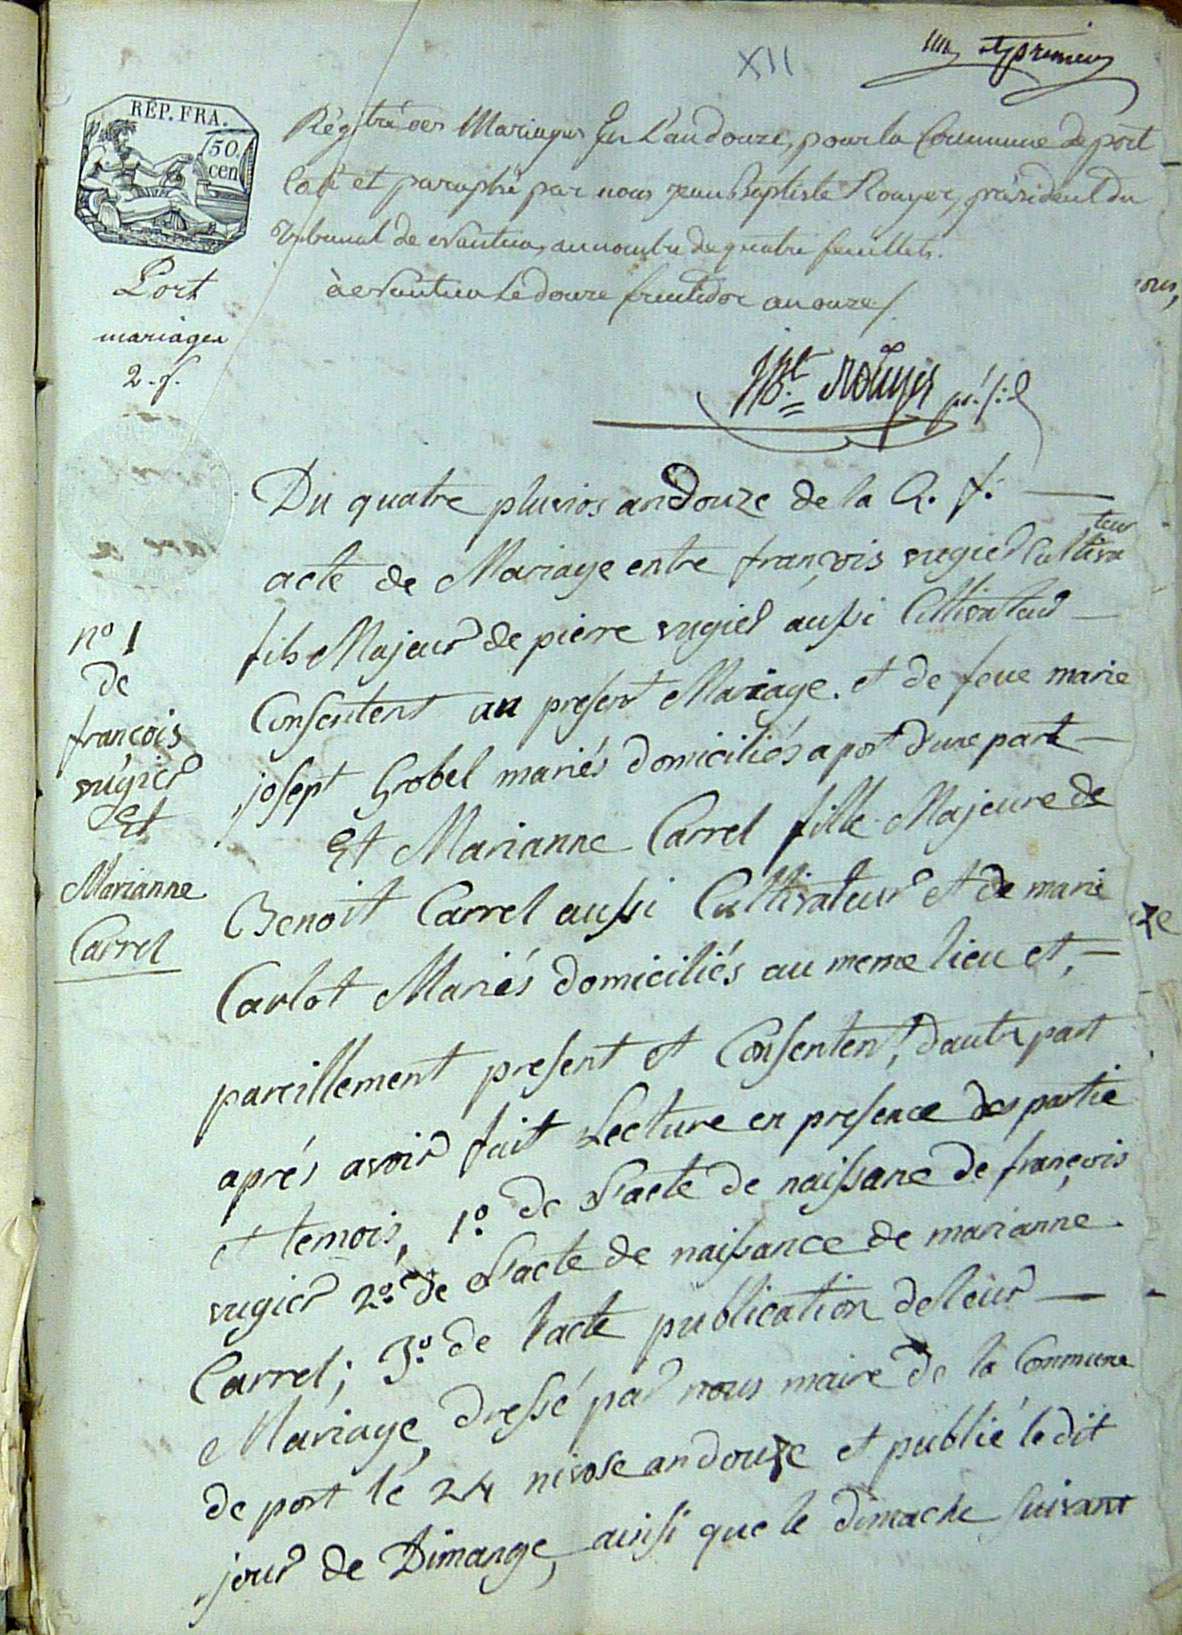 XII
un et premier
REP. FRA.
50.
cen
Régitré des Mariages En L'an douze, pour la Commune de port
Coté et paraphé par nous jean Baptiste Rouyer, président du
Tribunal de Nantua, au nombre de quatre feuillets.
à Nantua Le douze fructidor an onze /.
Port
mariages
2. f.
JBt. Rouyer présid
Du quatre pluvios an douze de la R. f. —
acte de Mariage entre françois rugier Cultiva
teur
fils Majeur de pierre rugier aussi Cultivateur —
Consentent au present Mariage. et de feue marie
josept Grobel mariés domiciliés a port d'une part —
Et Marianne Carrel fille Majeure de
Benoit Carrel aussi Cultivateur et de marie
Carlot Mariés domiciliés au meme lieu et, —
pareillement present et Consentent, d'autre part
aprés avoir fait Lecture en presence des partie
et temois, 1º. de L'acte de naissane de françois
rugier 2º. de L'acte de naissance de marianne
Carrel; 3º. de l'acte publication de leur —
Mariage, dressé par nous maire de la Commune
de port le 24 nivose an douze et publié le dit
jour de Dimange, ainsi que le dimache suivant
nº 1
de
françois
rugier
Et
Marianne
Carrel